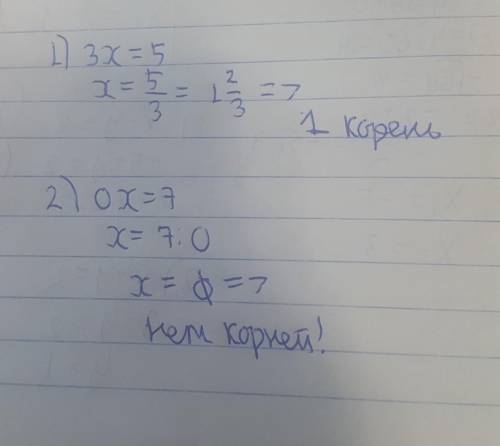 1) 3x = 5
x = 5/3 = 1 2/3 =>
1 корень
2) 0x = 7
x = 7:0
x = ∅ =>
нет корней!